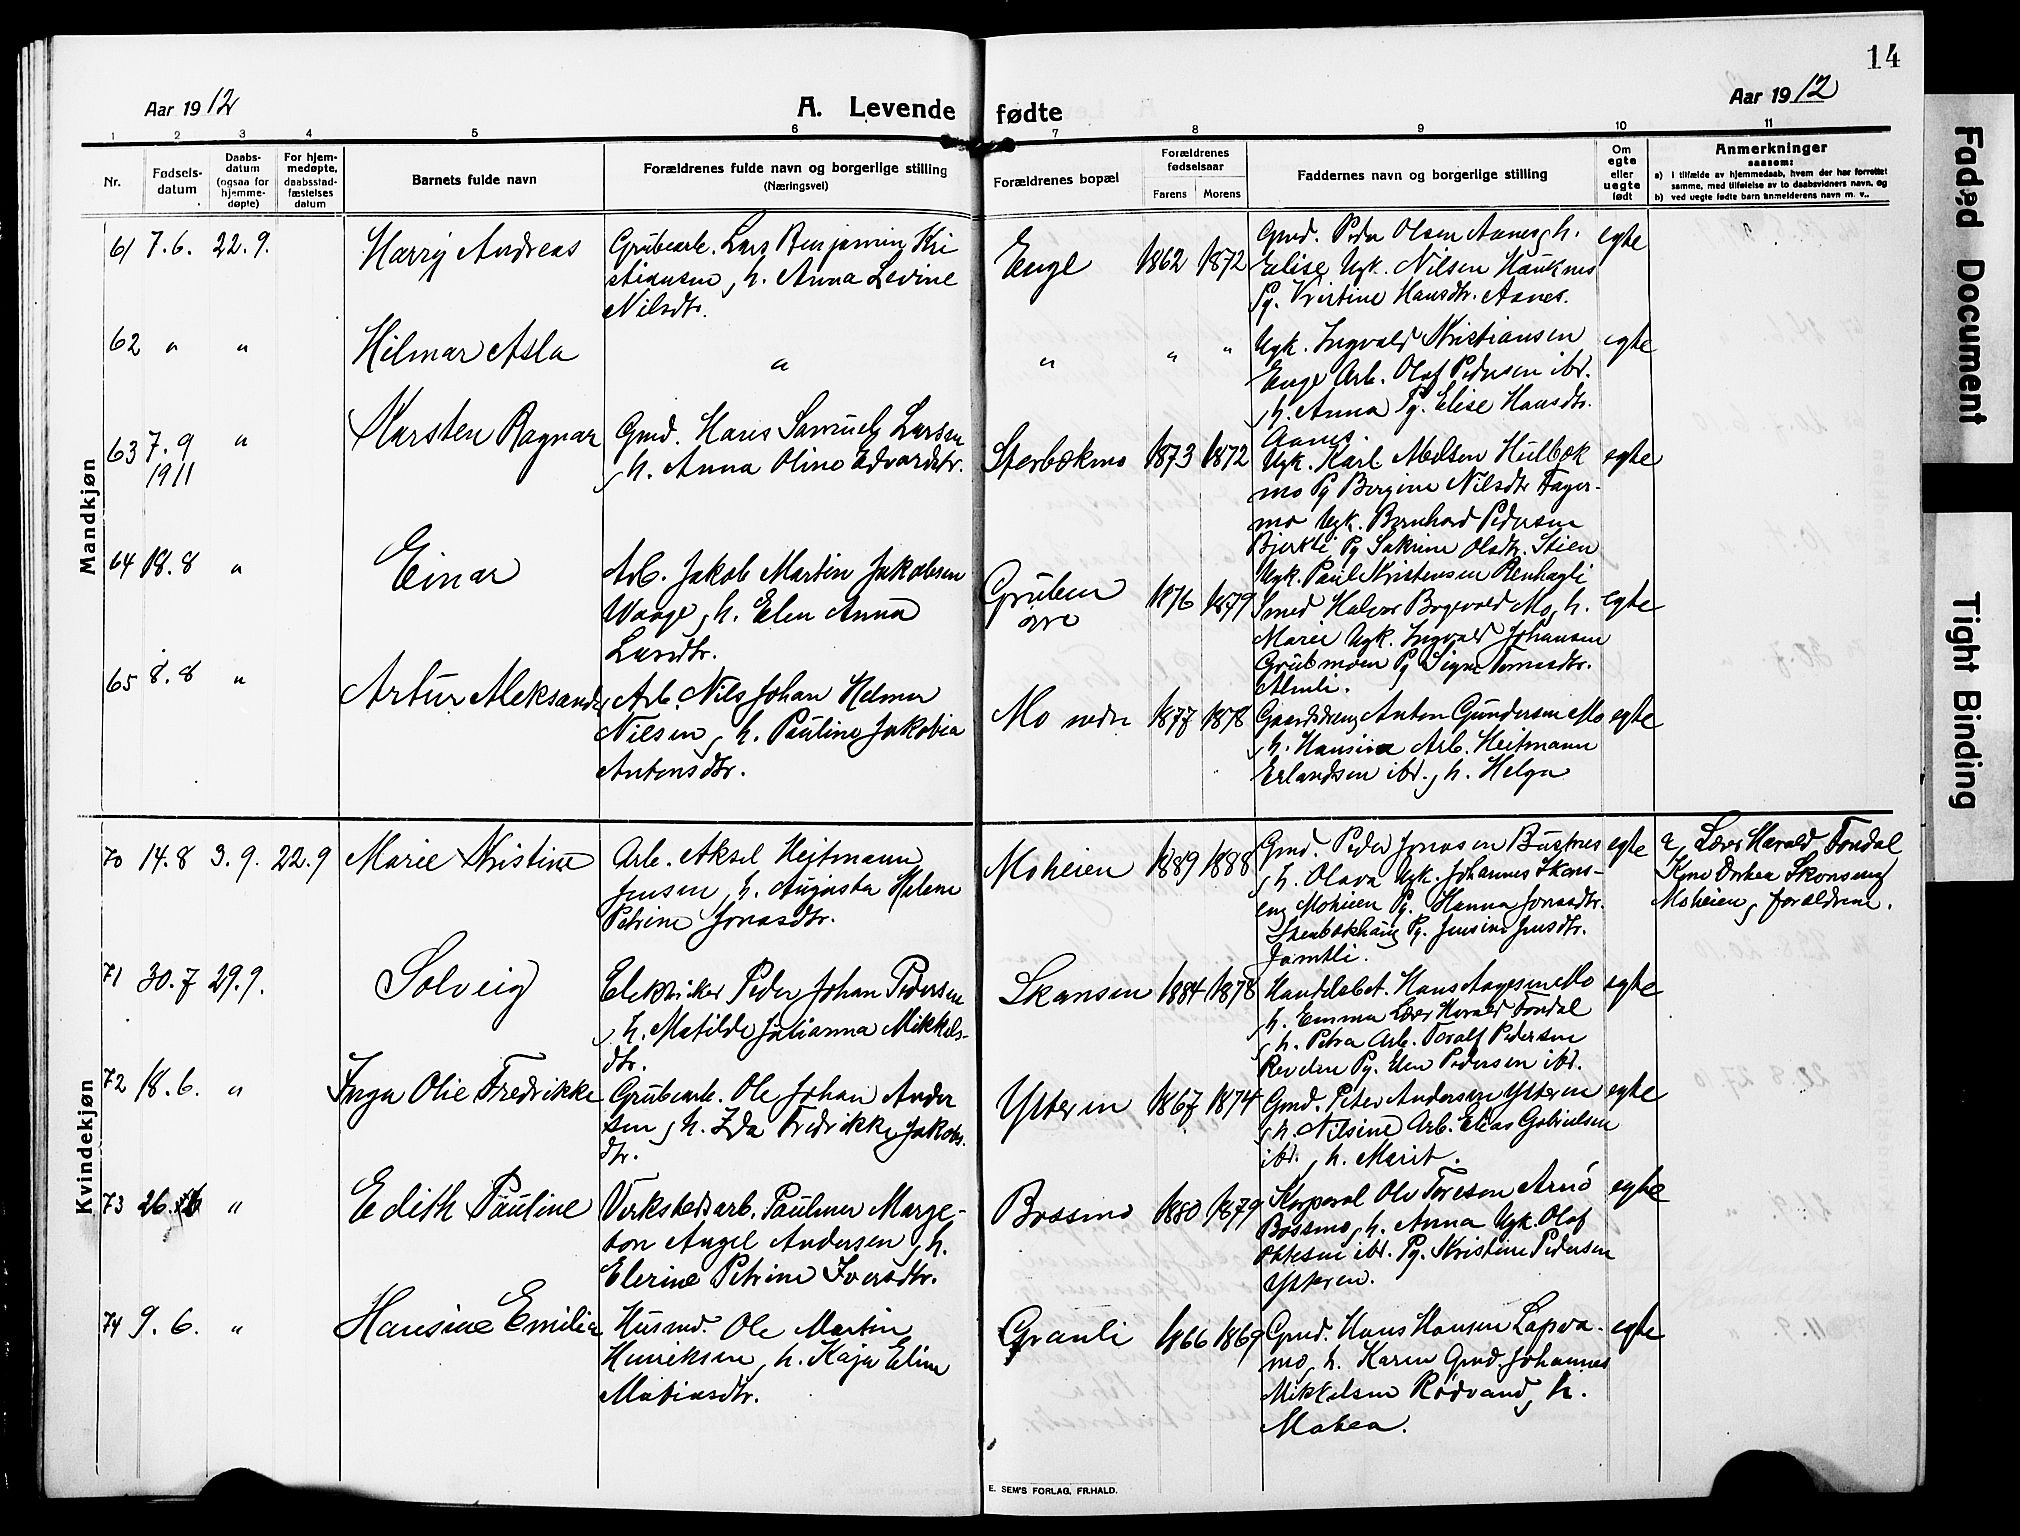 14
Aar 1912
A. Levende fødte
Aar 1912
1 2 3 4 5 6 7 8 9 10 11
Nr.
Fødsels-
datum
Daabs-
datum
(ogsaa for
hjemme-
døpte)
For hjem-
medøpte,
daabsstad-
fæstelses
datum
Barnets fulde navn
Forældrenes fulde navn og borgerlige stilling
(Næringsvei)
Forældrenes bopæl
Forældrenes
fødselsaar
Farens Morens
Faddernes navn og borgerlige stilling
Om
egte
eller
uegte
født
Anmerkninger
saasom:
a) i tilfælde av hjemmedaab, hvem der har forrettet
samme, med tilføielse av to daabsvidners navn, og
b) ved uegte fødte barn anmelderens navn m. v..
Mandkjøn
61 7.6. 22.9. Harry Andreas
Grubearb. Lars Benjamin Kri
stiansen, h. Anna Levine
Nilsdtr.
Enge 1862 1872
Gmd. Peder Olsen Aanes, h.
Elise Ugk. Nilsen Hauknes
Pg. Kristine Hansdtr. Aanes.
egte
62 " " Hilmar Asla
"
" " "
Ugk. Ingvald Kristiansen
Enge Arb. Olaf Pedersen ibd.
h. Anna Pg. Elise Hansdtr.
Aanes.
egte
63 7.9 1911 " Karsten Ragnar
Gmd. Hans Samuel Larsen
, h. Anna Oline Edvardsdtr.
Storbækmo 1873 1872
Ugk. Karl Nilsen Hulbæk
mo Pg Bergine Nilsdtr Fager-
mo Ugk. Bernhard Pedersen
Bjerkli Pg Sakrine Olsdtr. Stien
Ugk. Paul Kristensen Renhagli
egte
64 18.8 " Einar
Arb. Jakob Martin Jakobsen
Waage, h. Elen Anna
Larsdtr.
Gruben
øvre
1876 1879
Smed Halvor Mo, h.
Marie Ugk. Ingvald Johansen
Grubmoen Pg Signe Tomasdtr.
Almli.
egte
65 8.8 " Artur Aleksander
Arb. Nils Johan Helmer
Nilsen, h. Pauline Jakobia
Antonsdtr.
Mo nedre 1877 1878
Gaardsdreng Anton Gundersen Mo
, h. Hansina Arb. Heitmann
Erlandsen ibd., h. Helga
egte
Kvindekjøn
70 14.8 3.9. 22.9 Marie Kristine
Arb. Aksel Heitmann
Jensen, h. Augusta Helene
Petrine Jonasdtr.
Moheien 1889 1888
Gmd. Peder Jonasen Bustnes
, h. Olava Ugk. Johannes Skons-
eng Moheien Pg. Hanna Jonasdtr.
Stenbækhaug Pg. Jensine Jensdtr.
Jamtli.
egte
a, Lærer Harald Fondal
Kone Dorthea Skonseng
Moheien, forældrene.
71 30.7 29.9. Solveig
Elektriker Peder Johan Pedersen
, h. Matilde Julianna Mikkels-
dtr.
Skansen 1884 1878
Handelsbet. Hans Aagesen Mo
h. Emma Lærer Harald Fondal
, h. Petra Arb. Toralf Pedersen
Revelen Pg. Elen Pedersen ibd.
egte
72 18.6. " Inga Olie Fredrikke
Grubearb. Ole Johan Ander
sen, h. Ida Fredrikke Jakobs.
dtr.
Ytteren 1867 1874
Gmd. Peter Andersen Ytteren
, h. Nilsine Arb. Elias Gabrielsen
ibd., h. Marit.
egte
73 26.6 " Edith Pauline
Verkstedsarb. Paulmer Marge-
ton Angel Andersen, h.
Elerine Petrine Iversdtr.
Bossmo 1880 1879
Korporal Ole Toresen Arnö
Bossmo, h. Anna Ugk. Olaf
Ottesen ibd. Pg. Kristine Pedersen
Ytteren.
egte
74 9.6. " Hansine Emilia
Husmd. Ole Martin
Henriksen, h. Kaja Eline
Matiasdtr.
Granli 1866 1869
Gmd. Hans Hansen Lapva-
mo, h. Karen Gmd. Johannes
Mikkelsen Rødvand, h.
Matea.
egte
E. SEM'S FORLAG, FR.HALD.
Faded Document
Tight Binding